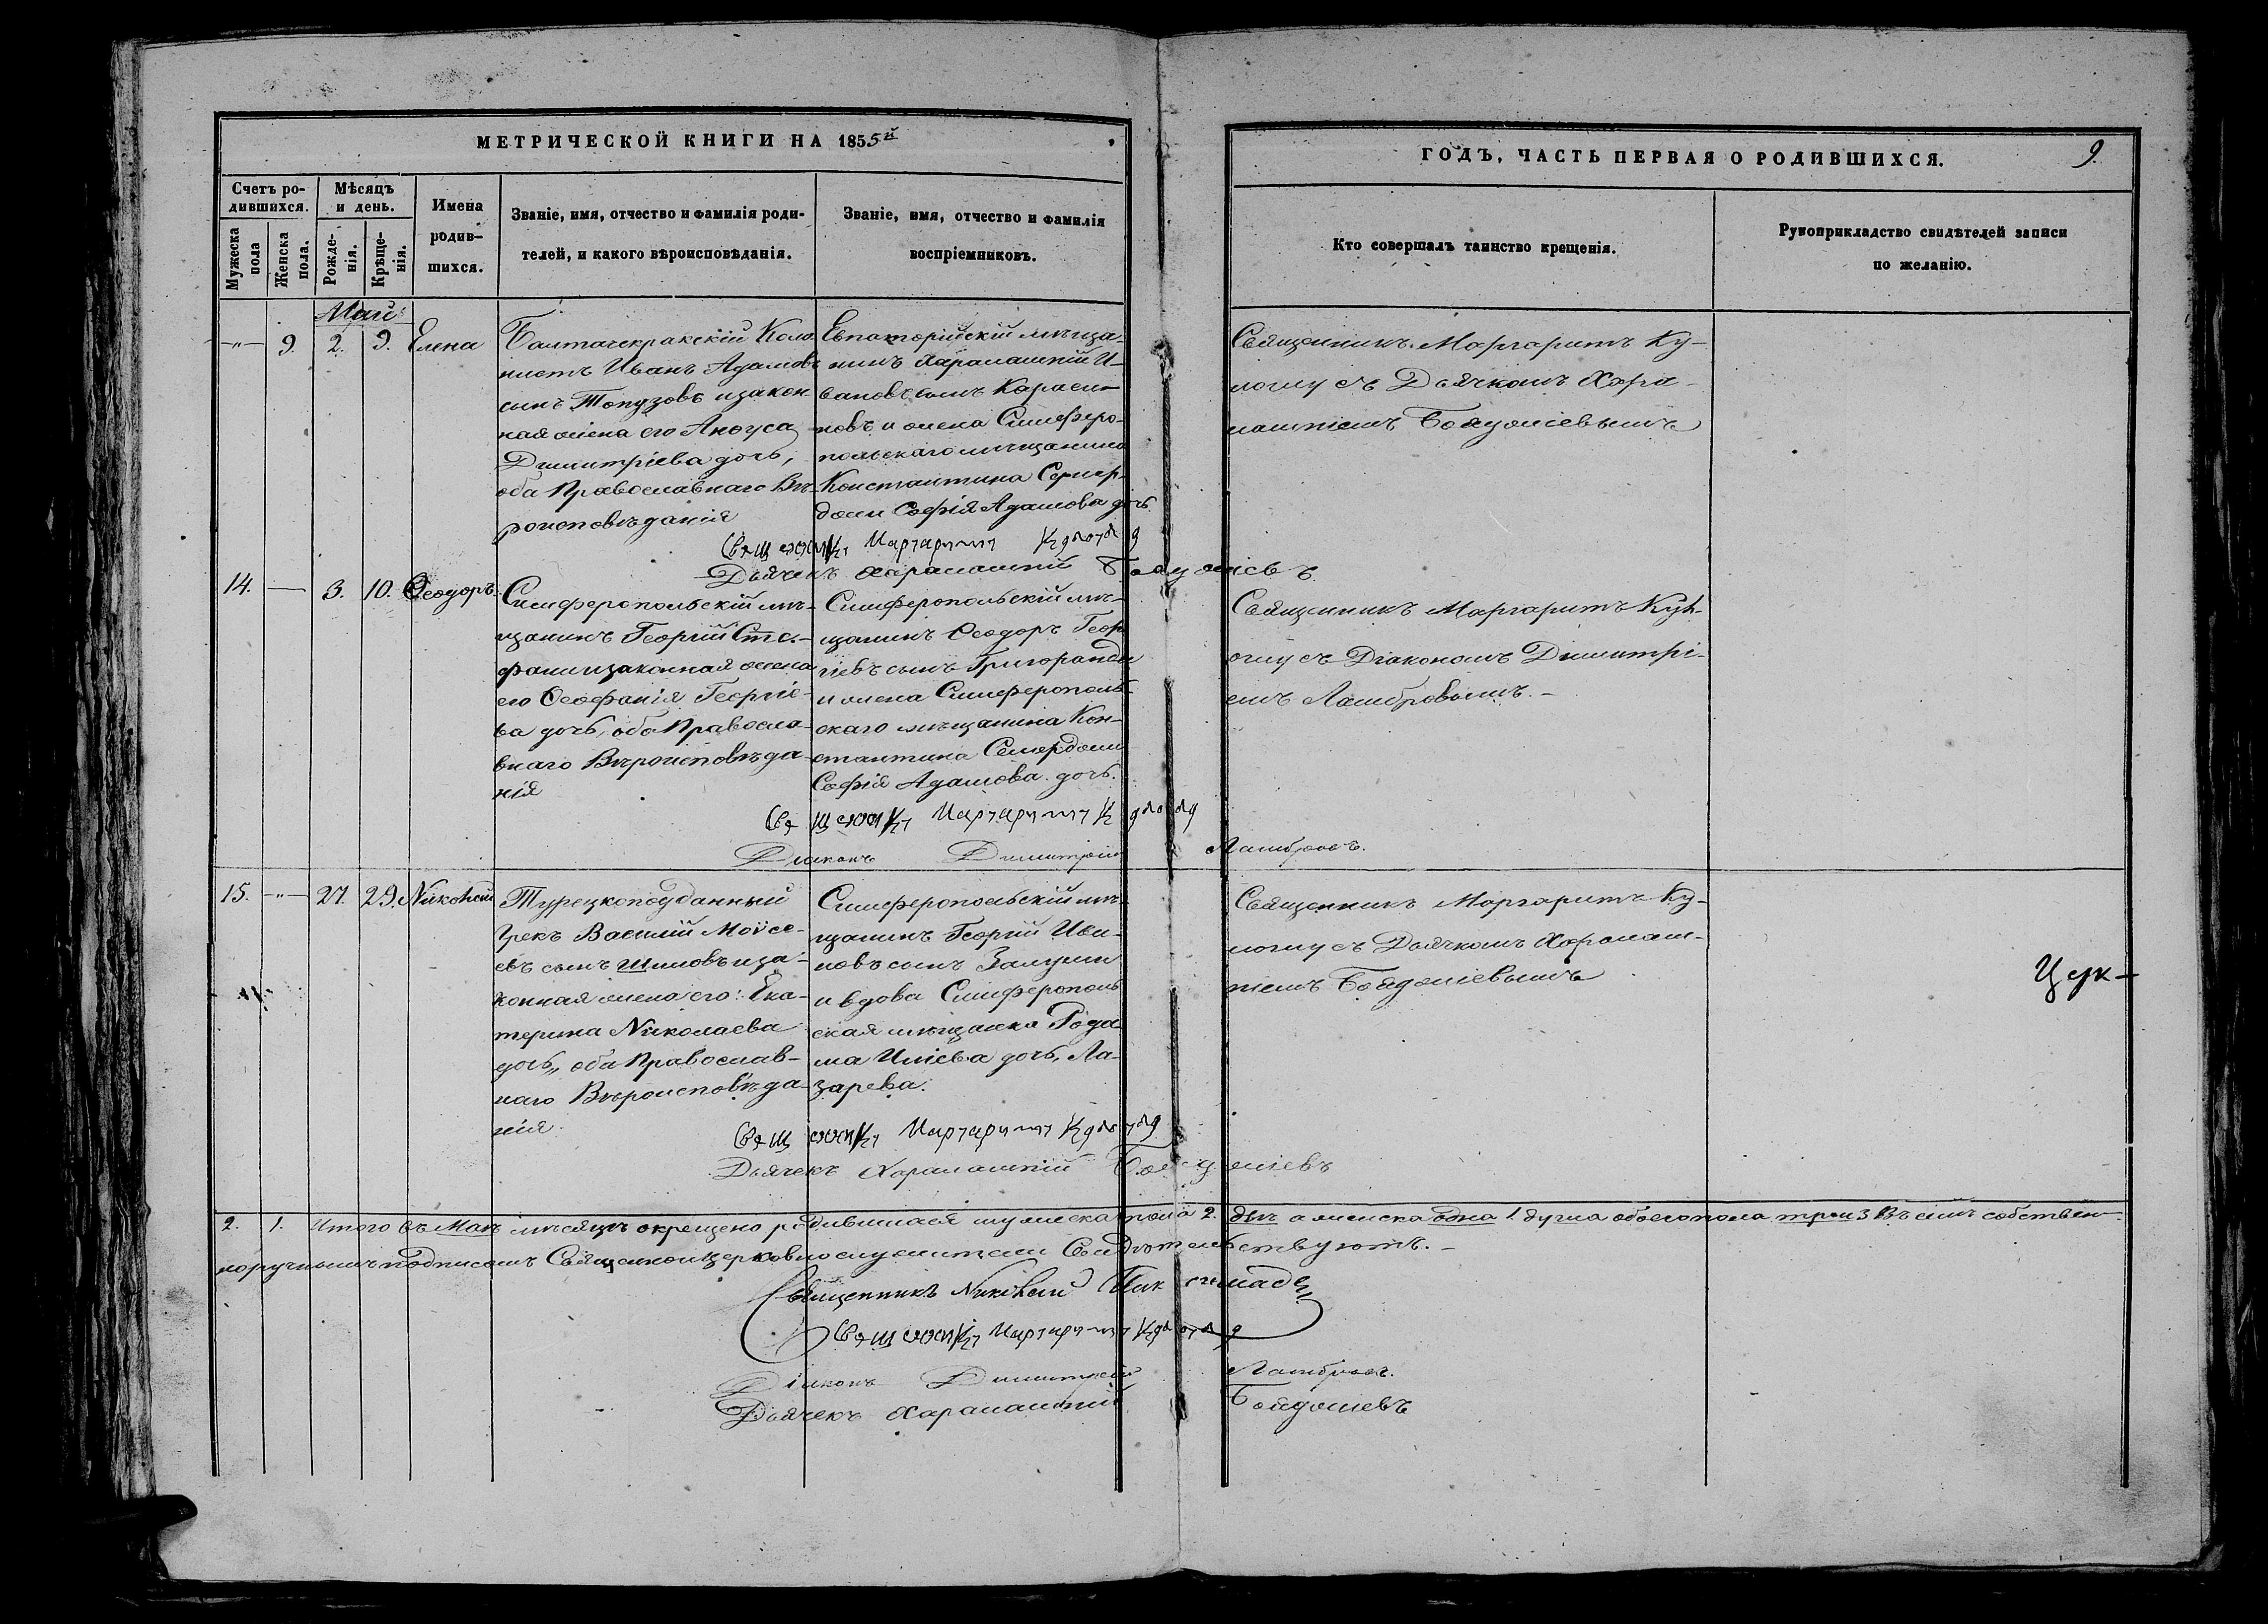 МЕТРИЧЕСКОЙ КНИГИ НА 1855й
ГОДЪ, ЧАСТЬ ПЕРВАЯ О РОДИВШИХСЯ.
9.
Счетъ ро-
дившихся.
Мужеска
пола
Женска
пола.
Мѣсяцъ
и день.
Рожде-
нія.
Крѣще-
нія.
Имена
родив-
шихся.
Званіе, имя, отчество и фамилія роди-
телей, и какого вѣроисповѣданія.
Званіе, имя, отчество и фамилія
воспріемниковъ.
Кто совершалъ таинство крещенія.
Рукоприкладство свидѣтелей записи
по желанію.
Май
-"- 9. 2. 9. Елена
Балтачекракскій Коло
нистъ Иванъ Адамовъ
сынъ Топузовъ и закон
ная жена его
Димитріева дочь,
оба Православнаго Вѣ-
роисповѣданія
Евпаторійскій мѣща-
нинъ Харалампій И-
вановъ сынъ
и жена Симферо-
польскаго мѣщанина
Константина
Софія Адамова дочь.
Священникъ Маргаритъ Ку-
съ Дьячкомъ Хара-
лампіемъ
Священникъ Маргаритъ
Дьячекъ Харалампій
14. — 3. 10. Ѳеодоръ.
Симферопольскій мѣ-
щанинъ Георгій Сте-
фани и законная жена
его Ѳеофанія Георгіе-
ва дочь, оба Правосла-
внаго Вѣроисповѣда-
нія
Симферопольскій мѣ-
щанинъ Ѳеодоръ Геор
гіевъ сынъ Григориади
и жена Симферополь-
скаго мѣщанина Кон-
стантина
Софія Адамова дочь.
Священникъ Маргаритъ
съ Діакономъ Димитрі-
емъ Ламбровымъ.-
Священникъ Маргаритъ
Діаконъ Димитрій Ламбровъ.
15. -"- 27. 29. Николай
Турецкоподданный
Грекъ Василій Моѵсе-
евъ сынъ и за-
конная жена его: Ека-
терина Николаева
дочь, оба Православ-
наго Вѣроисповѣда-
нія.
Симферопольскій мѣ-
щанинъ Георгій Ива-
новъ сынъ
и вдова Симферополь
ская мѣщанка Рода
ма Иліева дочь, Ла-
зарева.
Священникъ Маргаритъ Ку-
съ Дьячкомъ Харалам-
піемъ
Цук-
Священникъ Маргаритъ
Дьячекъ Харалампій
2. 1. Итого въ Маѣ мѣсяцѣ окрещено родившихся мужеска пола 2. двѣ а женска одна 1. душа обоего пола трои 3 Въ чемъ собствен-
норучнымъ подписомъ Священноцерковнослужители Свидѣтельствуютъ.-
Священникъ Николай
Священникъ Маргаритъ
Діаконъ Димитрій Ламбровъ.
Дьячекъ Харалампій